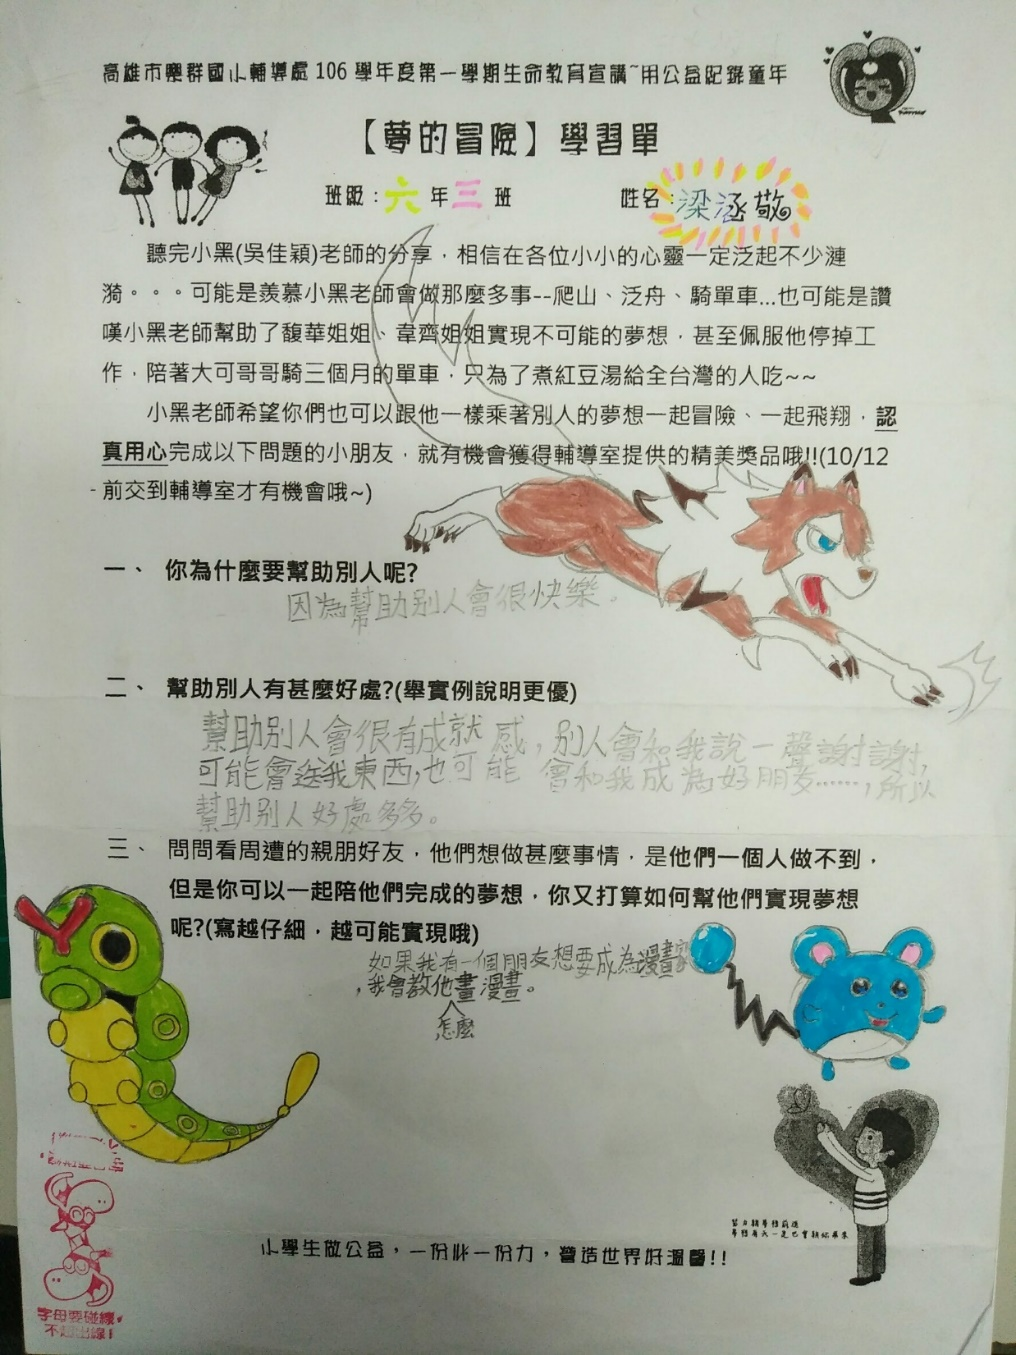 高雄市樂群國小輔導處 106 學年度第一學期生命教育宣講~用公益記錄童年
【夢的冒險】學習單
班級：六年三班 姓名：梁涵敬
聽完小黑(吳佳穎)老師的分享，相信在各位小小的心靈一定泛起不少漣
漪。。。可能是羨慕小黑老師會做那麼多事--爬山、泛舟、騎單車...也可能是讚
嘆小黑老師幫助了馥華姐姐、韋齊姐姐實現不可能的夢想，甚至佩服他停掉工
作，陪著大可哥哥騎三個月的單車，只為了煮紅豆湯給全台灣的人吃~~
小黑老師希望你們也可以跟他一樣乘著別人的夢想一起冒險、一起飛翔，認
真用心完成以下問題的小朋友，就有機會獲得輔導室提供的精美獎品哦!!(10/12
前交到輔導室才有機會哦~)
一、 你為什麼要幫助別人呢?
因為幫助別人會很快樂。
二、 幫助別人有甚麼好處?(舉實例說明更優)
幫助別人會很有成就感，別人會和我說一聲謝謝，
可能會送我東西，也可能會和我成為好朋友……，所以
幫助別人好處多多。
三、 問問看周遭的親朋好友，他們想做甚麼事情，是他們一個人做不到，
但是你可以一起陪他們完成的夢想，你又打算如何幫他們實現夢想
呢?(寫越仔細，越可能實現哦)
如果我有一個朋友想要成為漫畫家
，我會教他畫漫畫。
怎麼
小學生做公益，一份心一份力，營造世界好溫馨!!
字母要碰線，
不超出線!